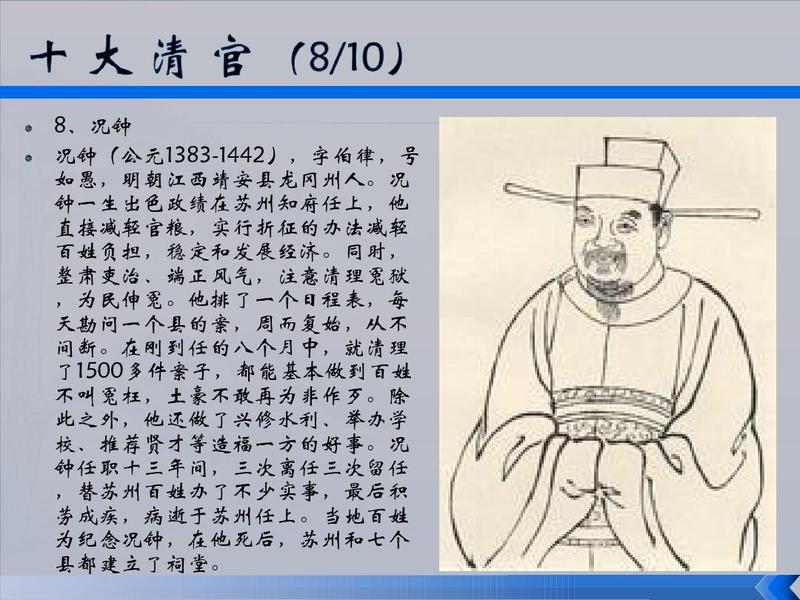 十大清官（8/10）
8、况钟
况钟（公元1383-1442），字伯律，号
如愚，明朝江西靖安县龙冈州人。况
钟一生出色政绩在苏州知府任上，他
直接减轻官粮，实行折征的办法减轻
百姓负担，稳定和发展经济。同时，
整肃吏治、端正风气，注意清理冤狱
，为民伸冤。他排了一个日程表，每
天勘问一个县的案，周而复始，从不
间断。在刚到任的八个月中，就清理
了1500多件案子，都能基本做到百姓
不叫冤枉，土豪不敢再为非作歹。除
此之外，他还做了兴修水利、举办学
校、推荐贤才等造福一方的好事。况
钟任职十三年间，三次离任三次留任
，替苏州百姓办了不少实事，最后积
劳成疾，病逝于苏州任上。当地百姓
为纪念况钟，在他死后，苏州和七个
县都建立了祠堂。